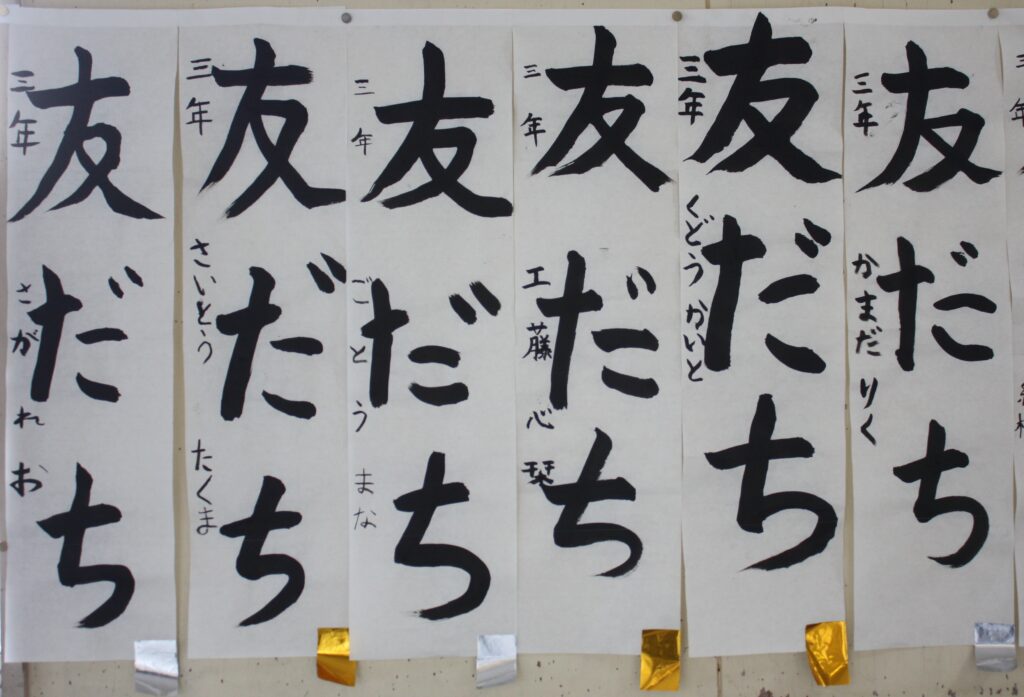 友だち
三年 かまだ りく
友だち
三年 くどう かいと
友だち
三年 工藤 心栞
友だち
三年 ごとう まな
友だち
三年 さいとう たくま
友だち
三年 さがれお